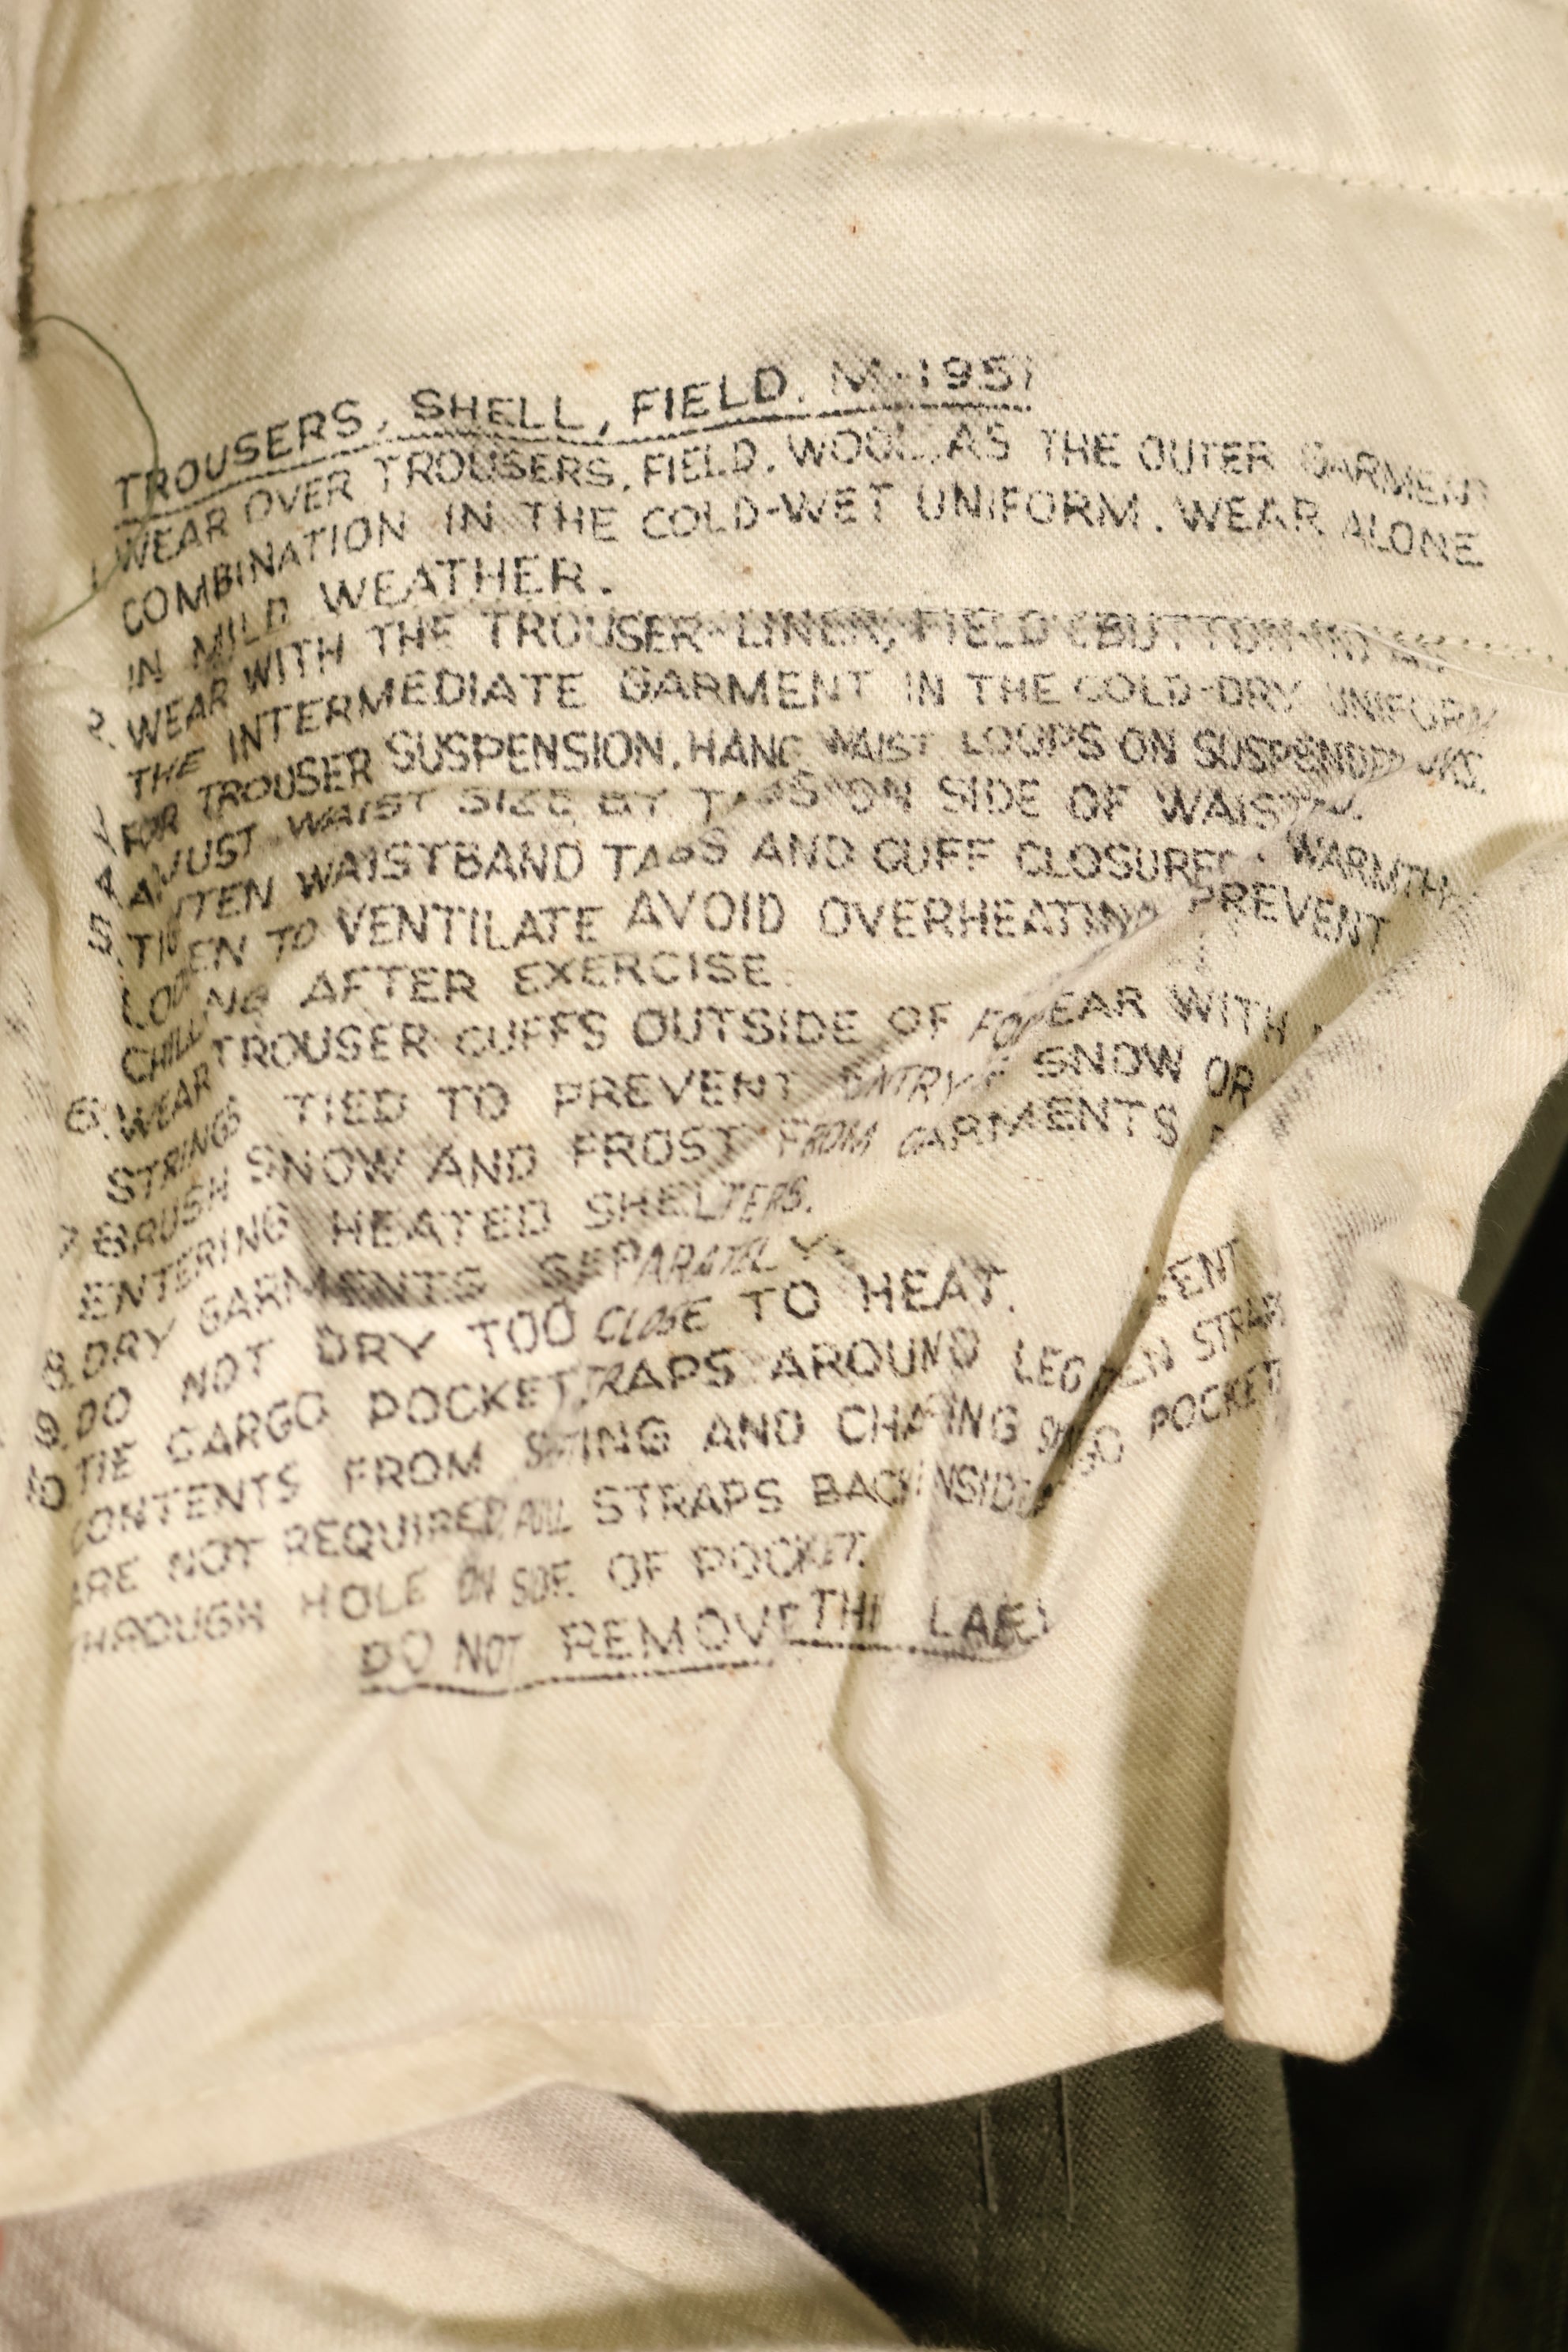 TROUSERS, SHELL, FIELD, M-1951
1. WEAR OVER TROUSERS, FIELD, WOOL AS THE OUTER GARMENT
COMBINATION IN THE COLD-WET UNIFORM. WEAR ALONE
IN MILD WEATHER.
2. WEAR WITH THE TROUSER LINER, FIELD (BUTTON-IN) AS
THE INTERMEDIATE GARMENT IN THE COLD-DRY UNIFORM
FOR TROUSER SUSPENSION, HANG WAIST LOOPS ON SUSPENDER
4. ADJUST WAIST SIZE BY TABS ON SIDE OF WAIST
5. TIGHTEN WAISTBAND TABS AND CUFF CLOSURE WARMTH
LOOSEN TO VENTILATE AVOID OVERHEATING PREVENT
CHILLING AFTER EXERCISE.
6. WEAR TROUSER CUFFS OUTSIDE OF WITH
STRINGS TIED TO PREVENT ENTRY SNOW OR
7. BRUSH SNOW AND FROST FROM GARMENTS
ENTERING HEATED SHELTERS.
8. DRY GARMENTS SEPARATELY
9. DO NOT DRY TOO CLOSE TO HEAT.
10. TIE CARGO POCKET STRAPS AROUND LEG
CONTENTS FROM AND CHAFING STRAP
ARE NOT REQUIRED, PULL STRAPS BACK INSIDE POCKET
THROUGH HOLE ON SIDE OF POCKET.
DO NOT REMOVE THI LABEL